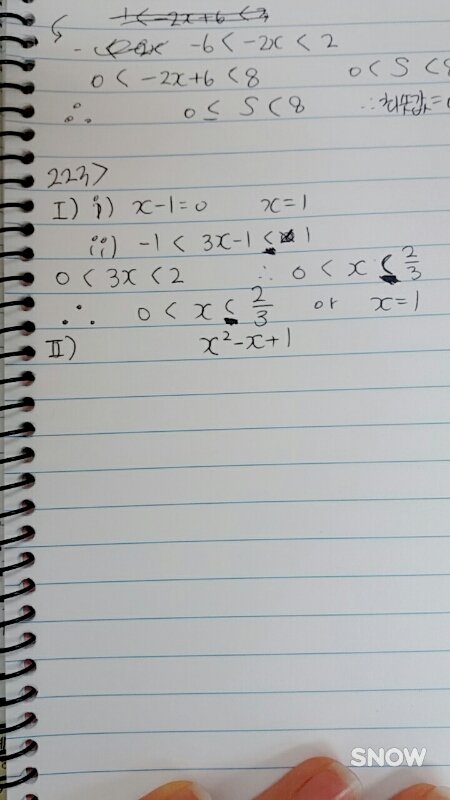 -6 < -2x < 2
0 < -2x+6 < 8 0 < S < 8
∴ 0 ≤ S < 8 ∴ 최솟값=0
223>
I) i) x-1=0 x=1
ii) -1 < 3x-1 ≤ 1
0 < 3x < 2 ∴ 0 < x ≤ 2/3
∴ 0 < x ≤ 2/3 or x=1
II) x²-x+1
SNOW